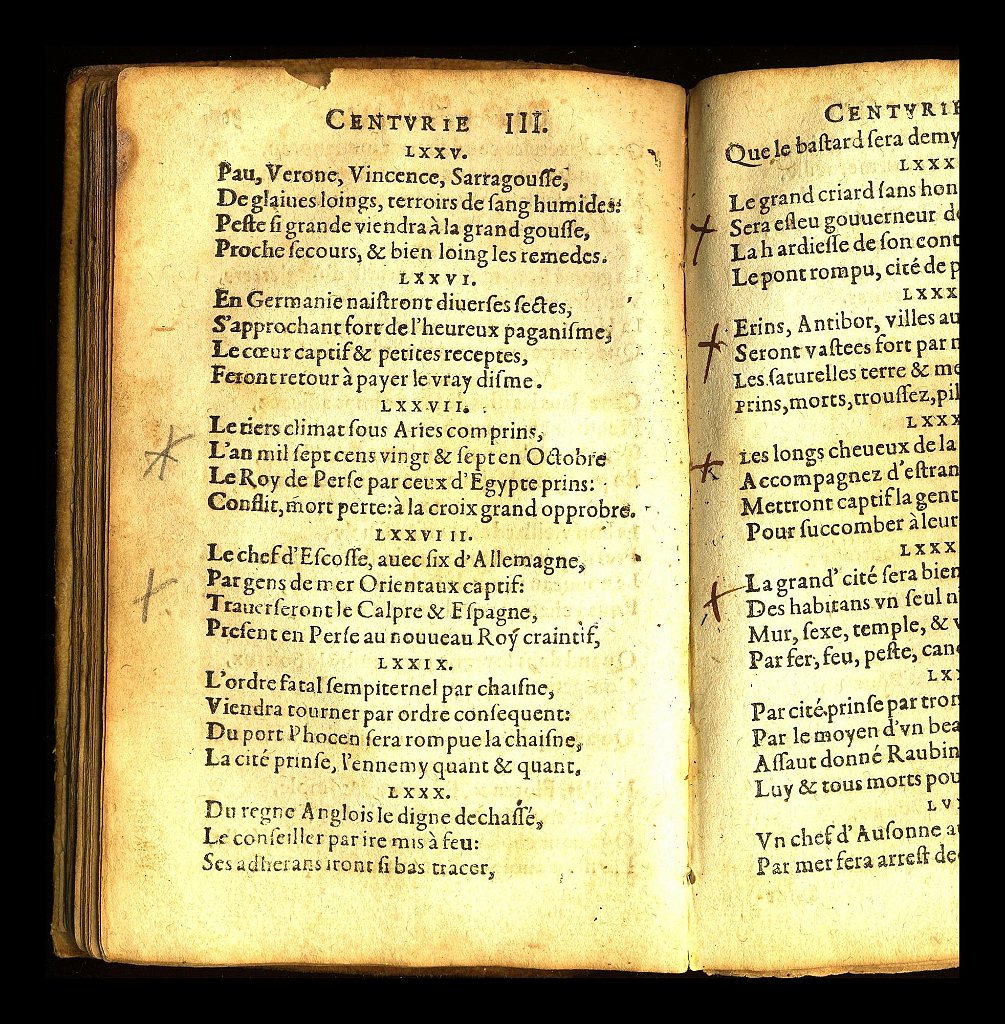 CENTVRIE III.
LXXV.
Pau, Verone, Vincence, Sarragousse,
De glaiues loings, terroirs de sang humides:
Peste si grande viendra à la grand gousse,
Proche secours, & bien loing les remedes.
LXXVI.
En Germanie naistront diuerses sectes,
S'approchant fort de l'heureux paganisme,
Le cœur captif & petites receptes,
Feront retour à payer le vray disme.
LXXVII.
Le tiers climat sous Aries comprins,
L'an mil sept cens vingt & sept en Octobre
Le Roy de Perse par ceux d'Egypte prins:
Conflit, mort perte: à la croix grand opprobre.
LXXVIII.
Le chef d'Escosse, auec six d'Allemagne,
Par gens de mer Orientaux captif:
Trauerseront le Calpre & Espagne,
Present en Perse au nouueau Roy craintif,
LXXIX.
L'ordre fatal sempiternel par chaisne,
Viendra tourner par ordre consequent:
Du port Phocen sera rompue la chaisne,
La cité prinse, l'ennemy quant & quant.
LXXX.
Du regne Anglois le digne dechassé,
Le conseiller par ire mis à feu:
Ses adherans iront si bas tracer,
CENTVRIE
Que le bastard sera demy
LXXX
Le grand criard sans hon
Sera esleu gouuerneur de
La hardiesse de son cont
Le pont rompu, cité de p
LXXX
Erins, Antibor, villes au
Seront vastees fort par m
Les saturelles terre & me
Prins, morts, troussez, pil
LXXX
Les longs cheueux de la
Accompagnez d'estran
Mettront captif la gent
Pour succomber à leur
LXXX
La grand' cité sera bien
Des habitans vn seul n
Mur, sexe, temple, & v
Par fer, feu, peste, can
LX
Par cité prinse par trom
Par le moyen d'vn bea
Assaut donné Raubin
Luy & tous morts pou
LV
Vn chef d'Ausonne a
Par mer fera arrest de